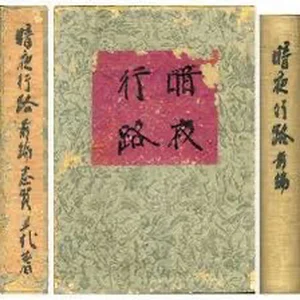 暗夜行路 前編 志賀直哉著
暗夜
行路
暗夜行路 前編